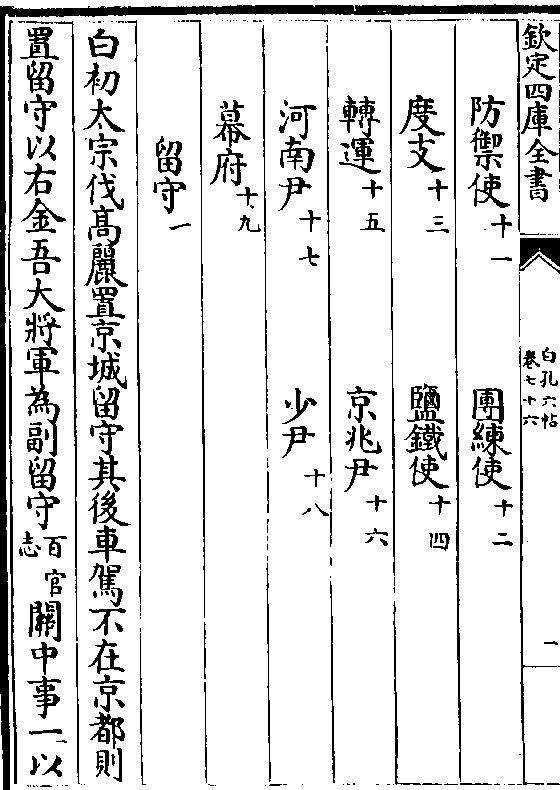 欽定四庫全書
白孔六帖
卷七十六
一
防禦使十一 團練使十二
度支十三 鹽鐵使十四
轉運十五 京兆尹十六
河南尹十七 少尹十八
幕府十九
留守一
白初太宗伐髙麗置京城留守其後車駕不在京都則
置留守以右金吾大將軍為副留守百官志關中事一以